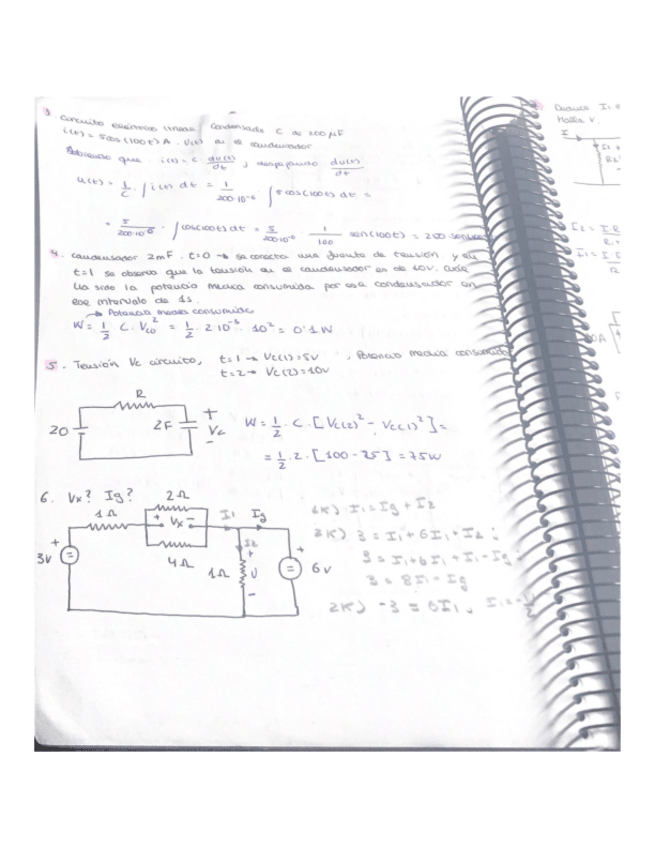 3. Circuito eléctrico lineal. Condensador C de 200 μF
i(t) = 5cos(100t) A. Vc(t) en el condensador
Sabiendo que i(t) = C · du(t)/dt, despejando du(t)/dt
u(t) = 1/C · ∫ i(t) dt = 1/200·10⁻⁶ · ∫ 5cos(100t) dt =
= 5/200·10⁻⁶ · ∫ cos(100t) dt = 5/200·10⁻⁶ · 1/100 sen(100t) =
4. Condensador 2mF. t=0 → se conecta una fuente de tensión y en
t=1 se observa que la tensión en el condensador es de 10v. Cuál
ha sido la potencia media consumida por ese condensador en
ese intervalo de 1s.
→ Potencia media consumida
W = 1/2 · C · Vc0² = 1/2 · 2·10⁻³ · 10² = 0'1 W
5. Tensión Vc circuito, t=1 → Vc(1)=5v , Potencia media consumida
t=2 → Vc(2)=10v
R
20
2F
+
Vc
-
W = 1/2 · C · [Vc(2)² - Vc(1)²] =
= 1/2 · 2 · [100 - 25] = 75W
6. Vx? Ig?
2Ω
1Ω
+ Vx -
I1
Ig
4Ω
I2
+
3v
1Ω
U
-
+
6v
1K) I1 = Ig + I2
2K) 3 = I1 + 6I1 + I2 ;
3 = I1 + 6I1 + I1 - Ig
3 = 8I1 - Ig
2K) -3 = 6I1 , I1 = -1/2
Deduce I1
Halla V.
I